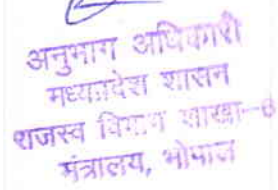 अनुभाग अधिकारी
मध्यप्रदेश शासन
राजस्व विभाग शाखा-6
मंत्रालय, भोपाल